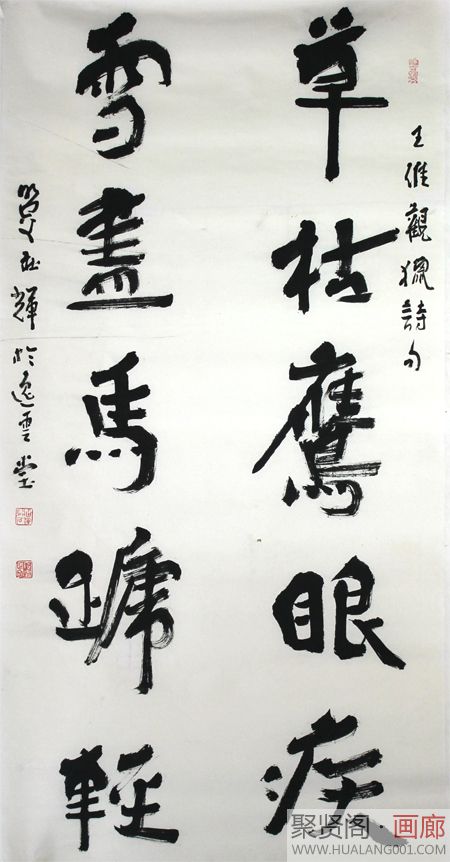 王維觀獵詩句
草枯鷹眼疾
雪盡馬蹏輕
輝於逸雲堂
聚贤阁·画廊
WWW.HUALANG001.COM